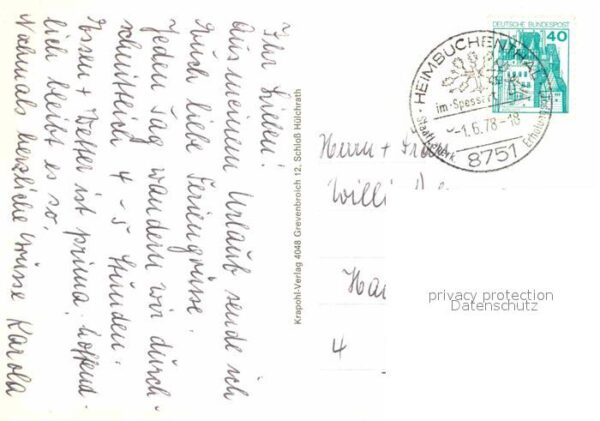 Ihr Lieben!
Aus meinem Urlaub sende ich
Euch liebe Feriengrüsse.
Jeden Tag wandern wir durch-
schnittlich 4-5 Stunden.
Essen + Wetter ist prima, hoffend-
lich bleibt es so.
Nochmals herzliche Grüsse Karola
Krapohl-Verlag 4048 Grevenbroich 12, Schloß Hülchrath
DEUTSCHE BUNDESPOST
40
HEIMBUCHENTHAL
im Spessart
-1.6.78-18
8751
Staatl. anerk. Erholungsort
Herrn +
Willi
4
privacy protection
Datenschutz